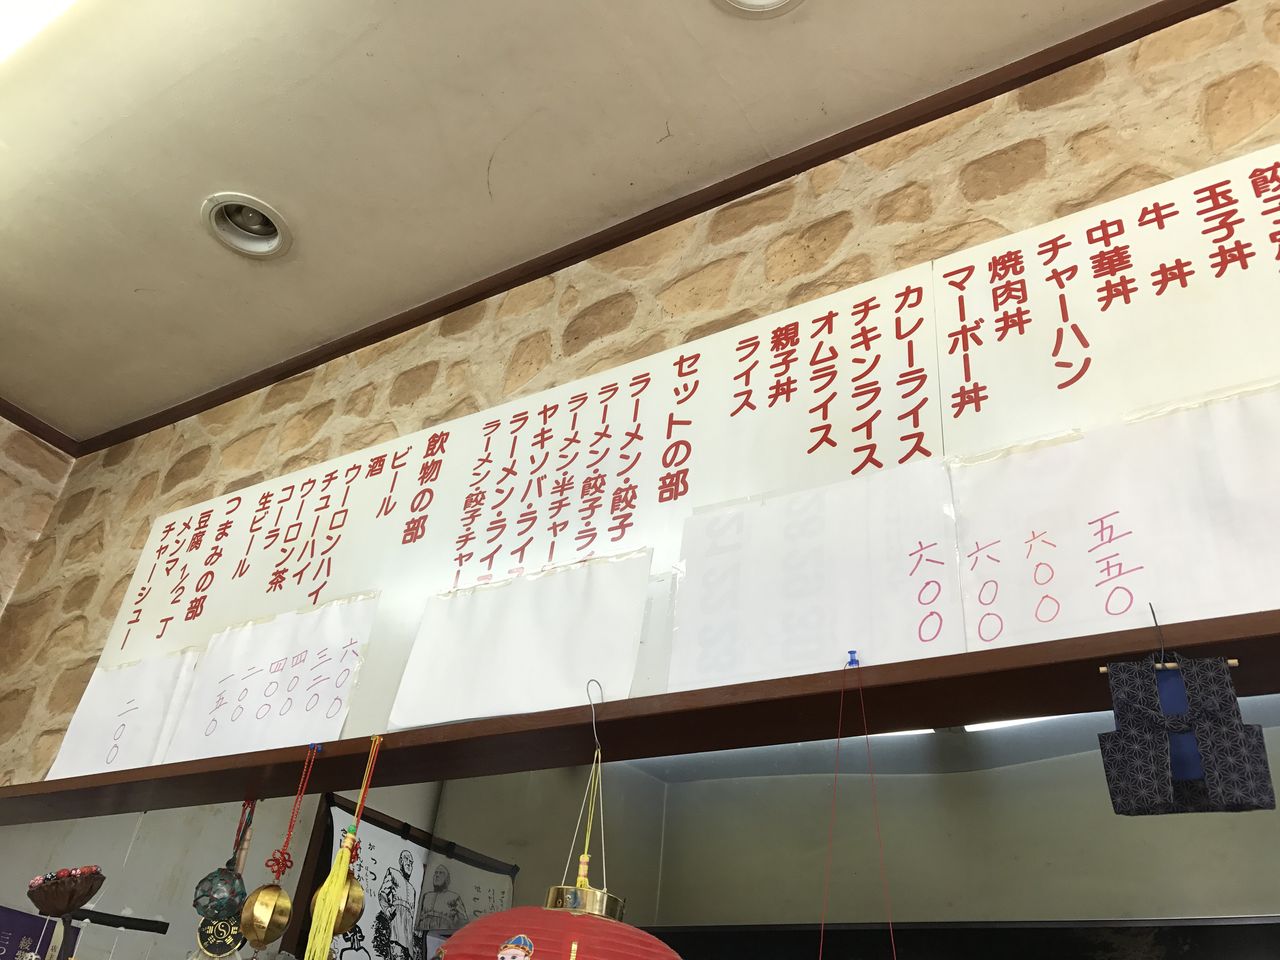 玉子丼
牛丼
中華丼
チャーハン
焼肉丼
マーボー丼
カレーライス
チキンライス
オムライス
親子丼
ライス
セットの部
ラーメン・餃子
ラーメン・餃子・ライ
ラーメン・半チャー
ヤキソバ・ライ
ラーメン・ライス
ラーメン・餃子・チャー
飲物の部
ビール
酒
ウーロンハイ
チューハイ
ウーロン茶
コーラ
生ビール
つまみの部
豆腐1/2丁
メンマ
チャーシュー
五五〇
六〇〇
六〇〇
六〇〇
六〇〇
三二〇
四〇〇
四〇〇
二〇〇
二五〇
二〇〇